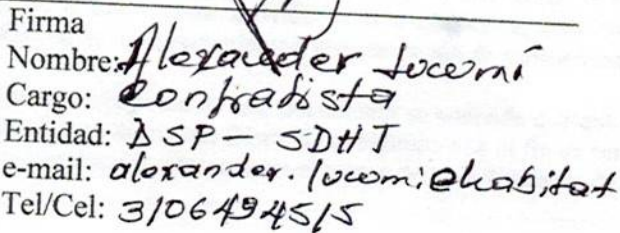 Firma
Nombre: Alexander Lucumí
Cargo: Contratista
Entidad: DSP - SDHT
e-mail: alexander.lucumi@habitat
Tel/Cel: 3106494515